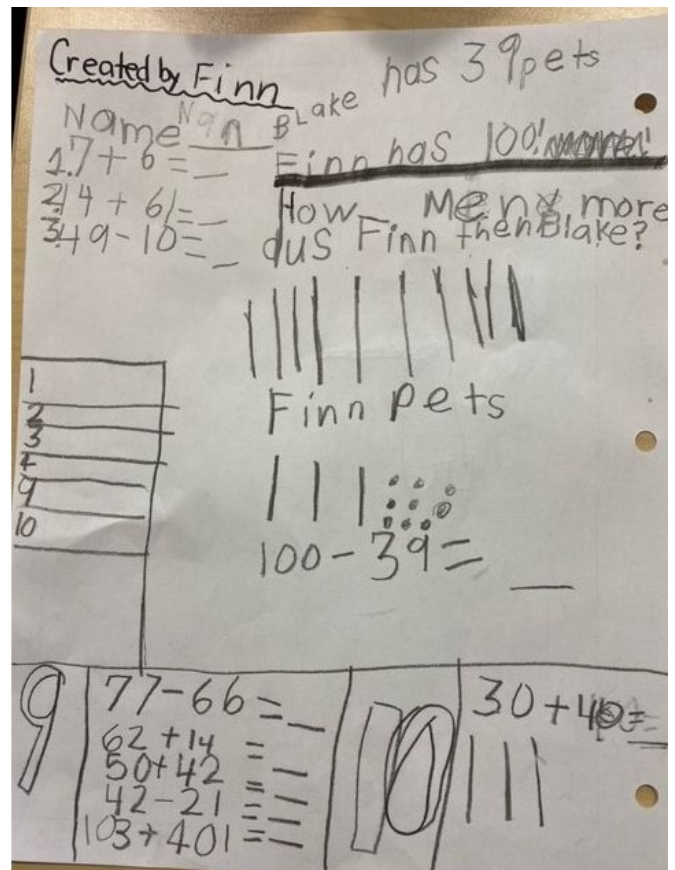 Created by Finn
Name Nan
1. 7 + 6 = _
2. 14 + 61 = _
3. 49 - 10 = _
BLake has 39 pets
Finn has 100!
How Meny more
dus Finn then Blake?
Finn pets
100 - 39 = _
1
2
3
4
9
10
9
77 - 66 = _
62 + 14 = _
50 + 42 = _
42 - 21 = _
103 + 401 = _
10
30 + 40 = _